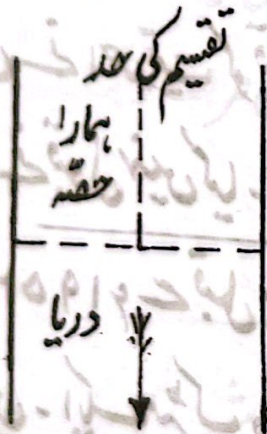 تقسیم کی حد
ہمارا
حصّہ
دریا